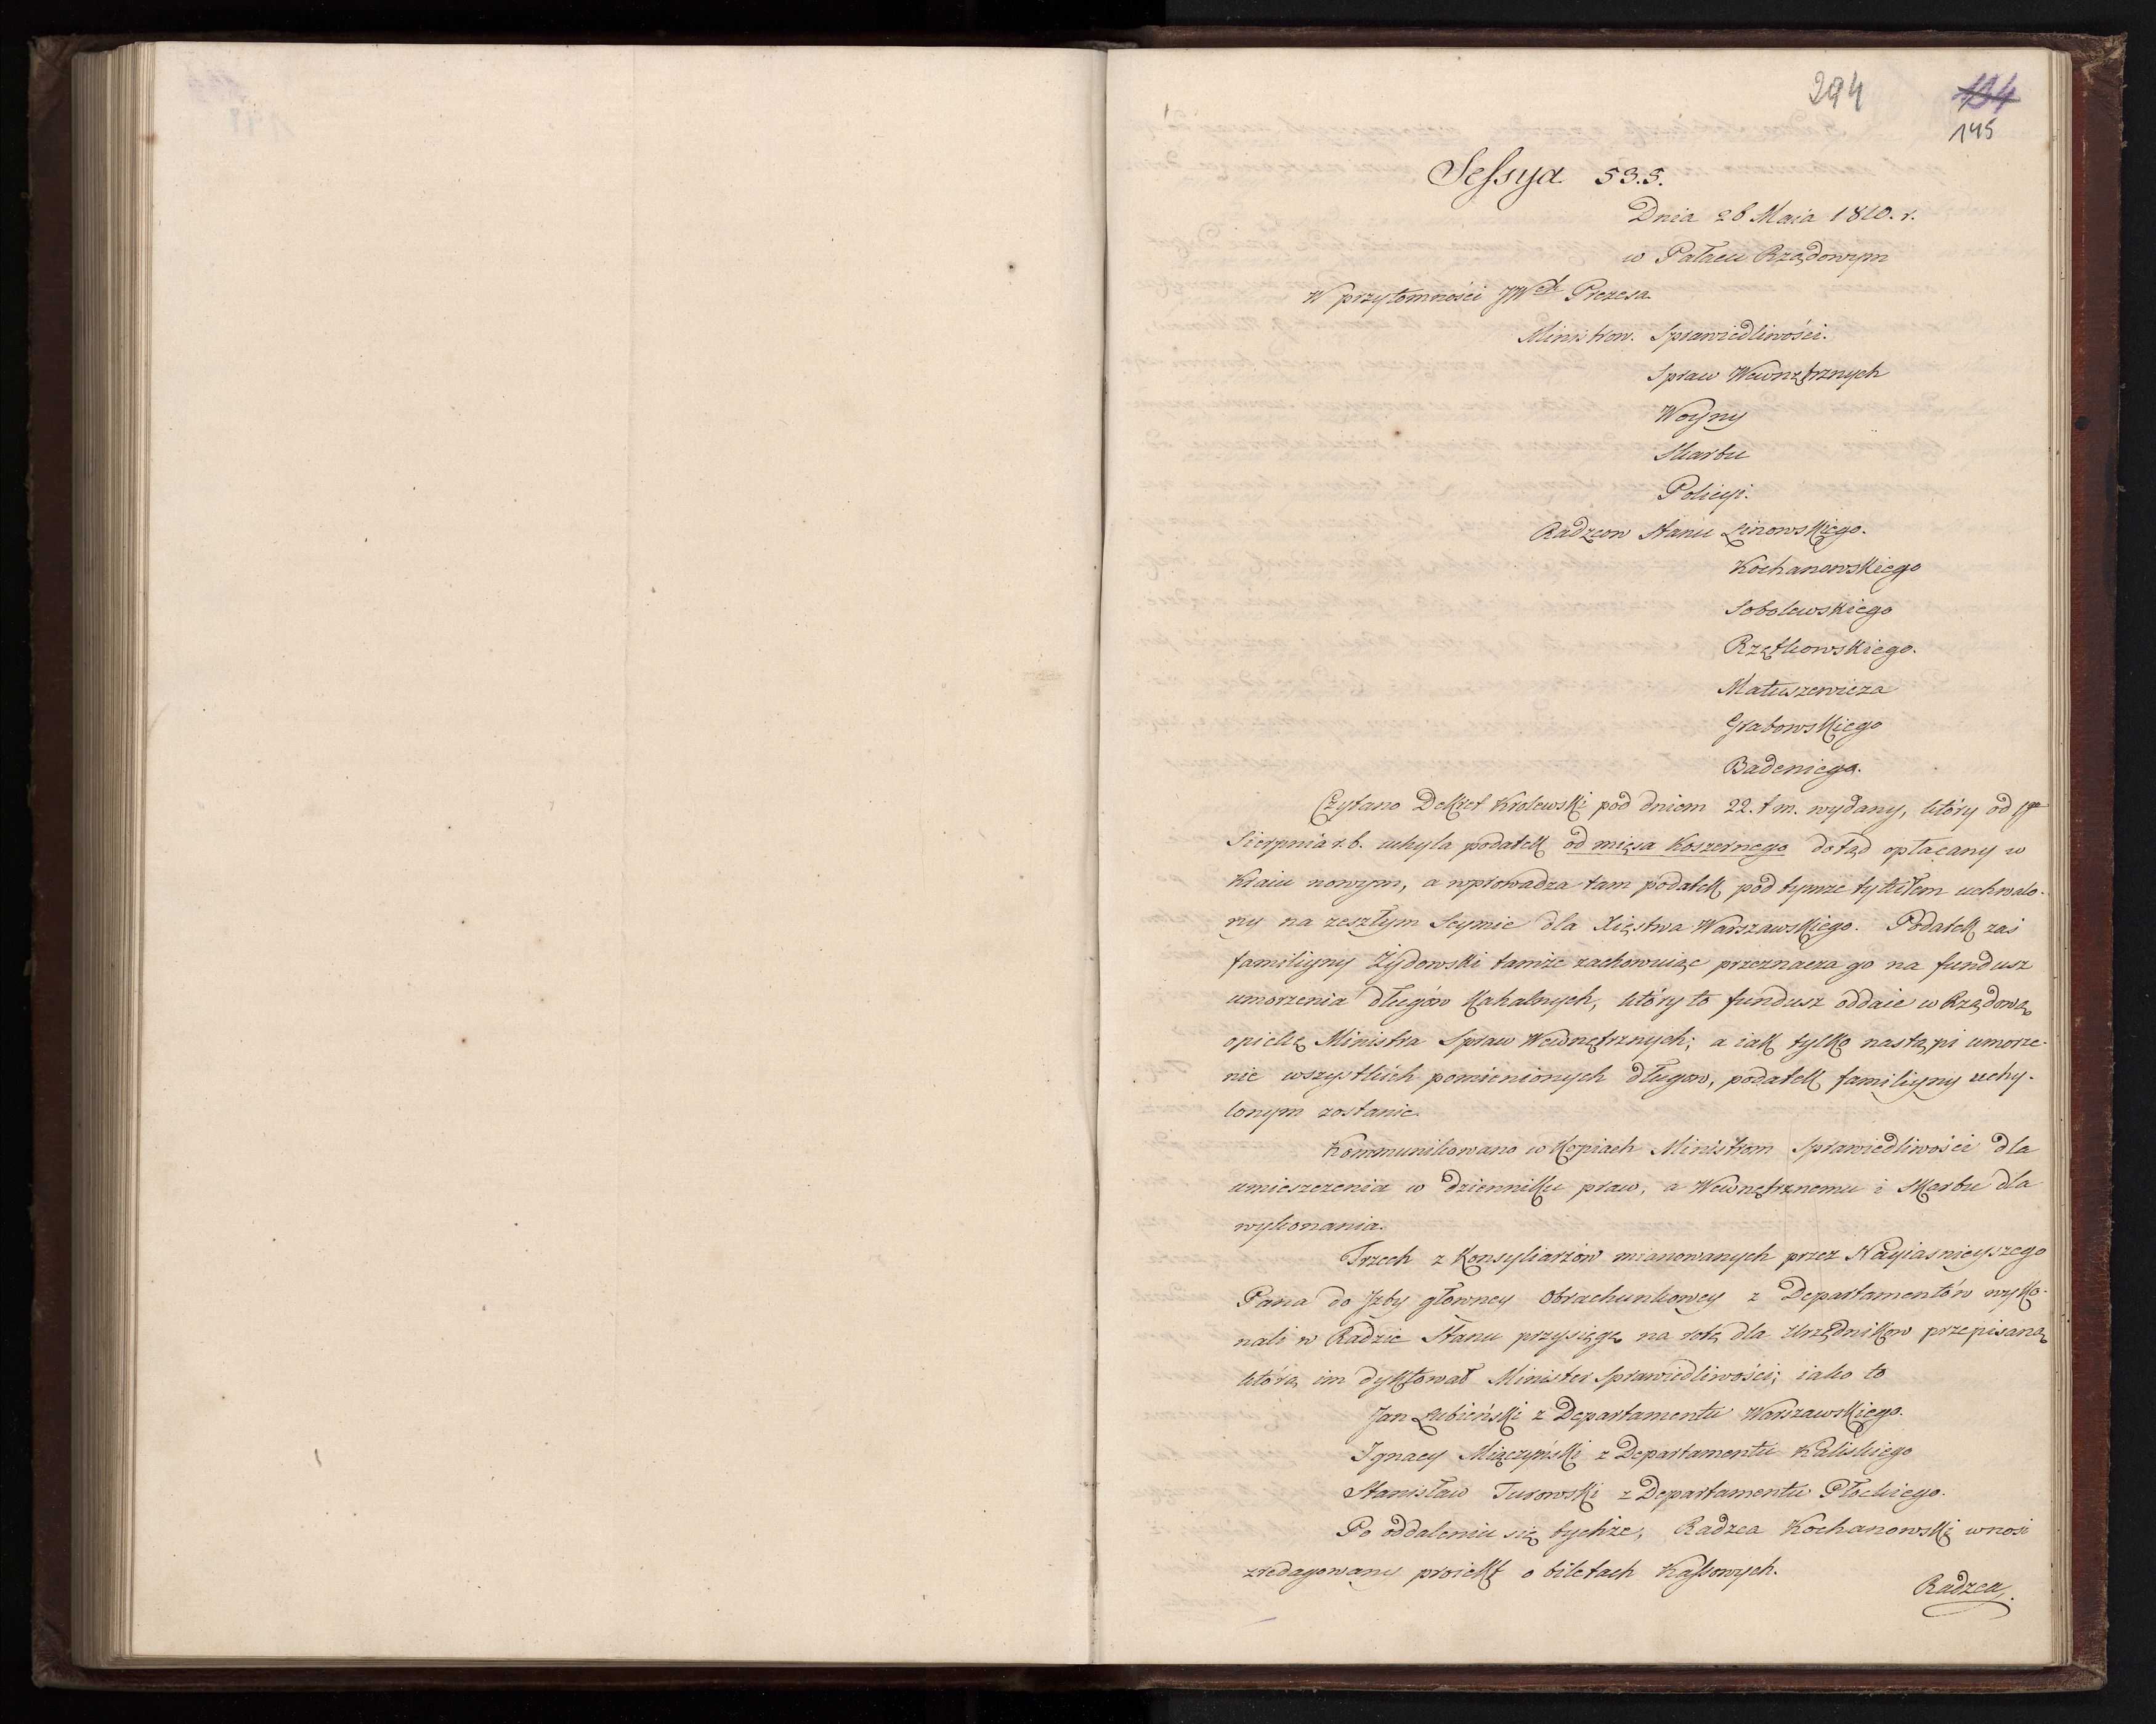 294 134
145
Sessya 53.5.
Dnia 26 Maia 1810. r.
w Pałacu Rządowym
W przytomności JWch Prezesa
Ministrow. Sprawiedliwości.
Spraw Wewnętrznych
Woyny
Skarbu
Policyi.
Radzcow Stanu Linowskiego.
Kochanowskiego
Sobolewskiego
Rzętkowskiego.
Matuszewicza
Grabowskiego
Badeniego.
Czytano Dekret Krolewski pod dniem 22. t m. wydany, który od 1go
Sierpnia r. b. uchyla podatek od mięsa Koszernego dotąd opłacany w
Kraiu nowym, a wprowadza tam podatek pod tymże tytułem uchwalo-
ny na zeszłym Seymie dla Xięstwa Warszawskiego. Podatek zaś
familiyny Żydowski tamże zachowuiąc przeznacza go na fundusz
umorzenia długów Kahalnych, który to fundusz oddaie w Rządową
opiekę Ministra Spraw Wewnętrznych; a iak tylko nastąpi umorze-
nie wszystkich pomienionych długow, podatek familiyny uchy-
lonym zostanie.
Kommunikowano w Kopiach Ministrom Sprawiedliwości dla
umieszczenia w dzienniku praw, a Wewnętrznemu i Skarbu dla
wykonania.
Trzech z Konsyliarzów mianowanych przez Nayiaśnieyszego
Pana do Jzby głowney Obrachunkowey z Departamentów wyko-
nali w Radzie Stanu przysięgę na rotę dla Urzędnikow przepisaną
którą im dyktował Minister Sprawiedliwości; iako to
Jan Łubieński z Departamentu Warszawskiego.
Ignacy Miączyński z Departamentu Kaliskiego
Stanisław Turowski z Departamentu Płockiego.
Po oddaleniu się tychże, Radzca Kochanowski wnosi
zredagowany proiekt o biletach Kassowych.
Radzca.